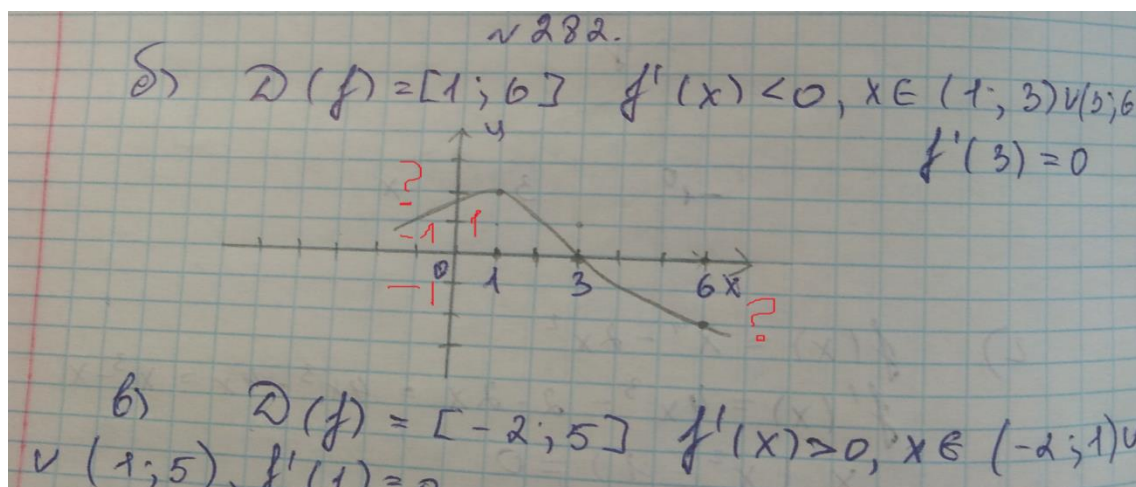 N 282.
б) D(f) = [1; 6] f'(x) < 0, x ∈ (1; 3) ∪ (3; 6
f'(3) = 0
y
?
-1 1
0 1 3 6 x
-1
?
в) D(f) = [-2; 5] f'(x) > 0, x ∈ (-2; 1) ∪
∪ (1; 5), f'(1) = 0